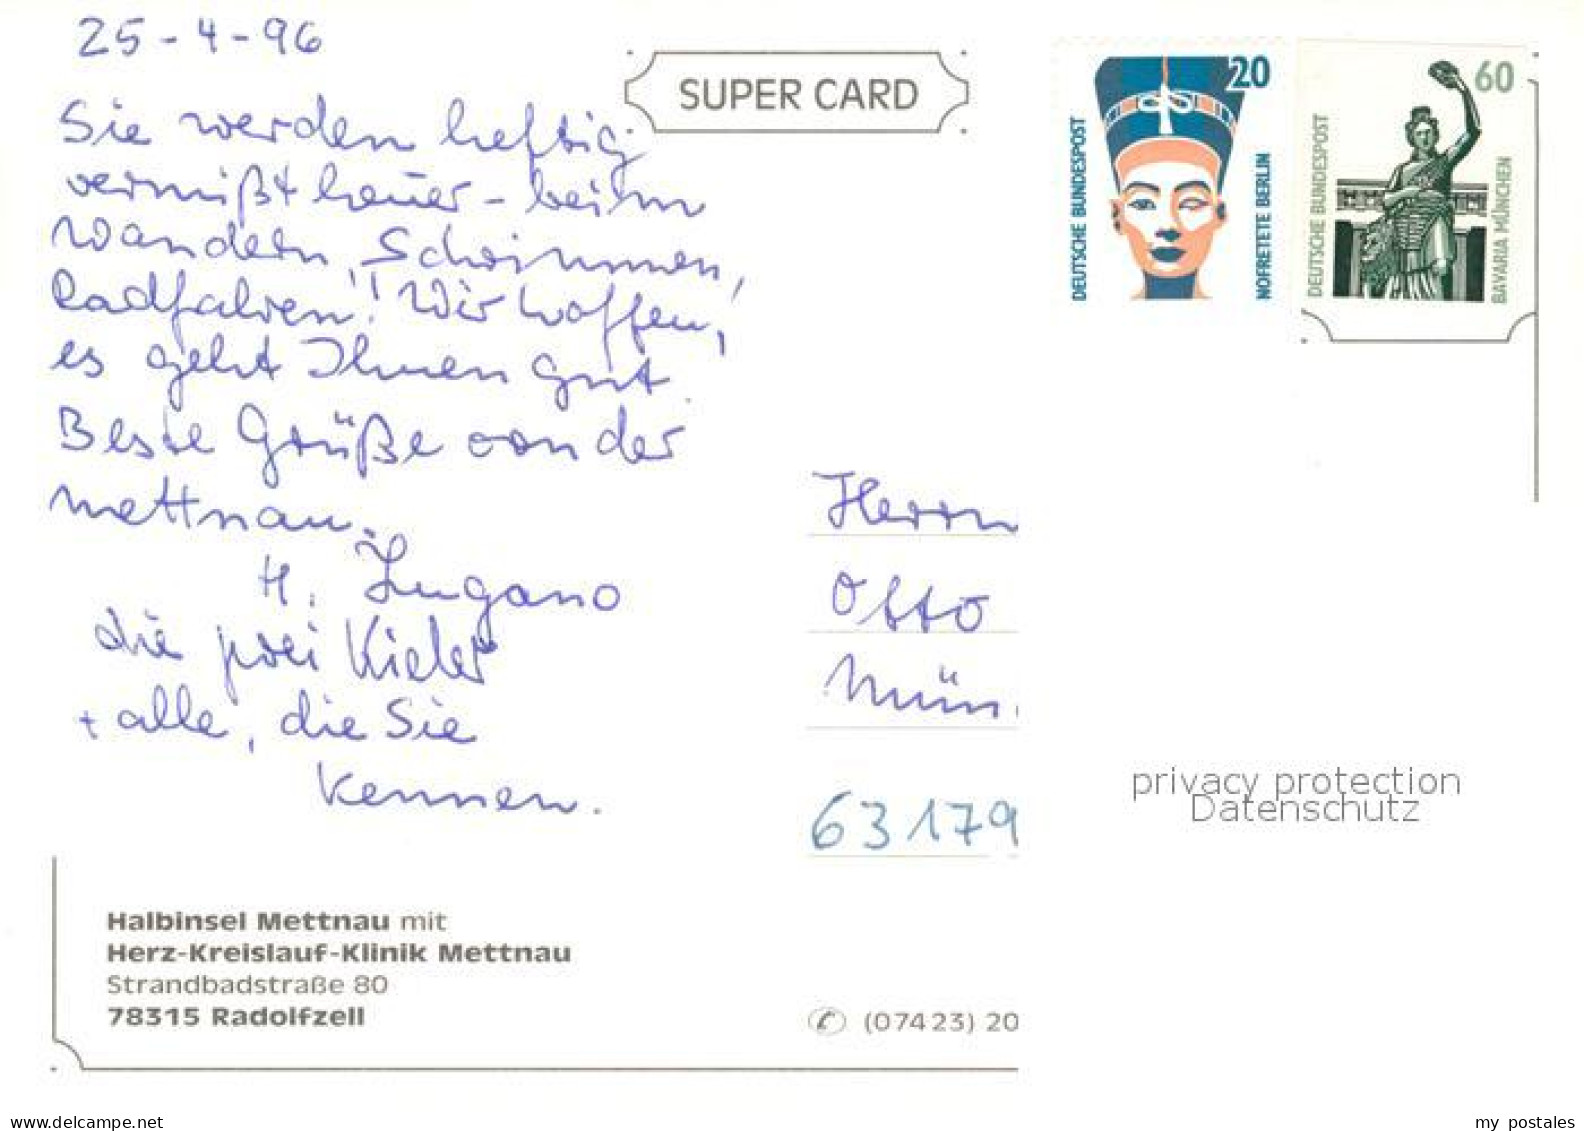 25-4-96
SUPER CARD
Sie werden heftig
vermißt heuer - beim
Wandern, Schwimmen,
Radfahren! Wir hoffen,
es geht Ihnen gut.
Beste Grüße von der
Mettnau.
H. Lugano
die zwei Kieler
+ alle, die Sie
kennen.
20
DEUTSCHE BUNDESPOST
NOFRETETE BERLIN
60
DEUTSCHE BUNDESPOST
BAVARIA MÜNCHEN
Herrn
Otto
Mün
63179
privacy protection
Datenschutz
Halbinsel Mettnau mit
Herz-Kreislauf-Klinik Mettnau
Strandbadstraße 80
78315 Radolfzell
(07423) 20
www.delcampe.net
my postales